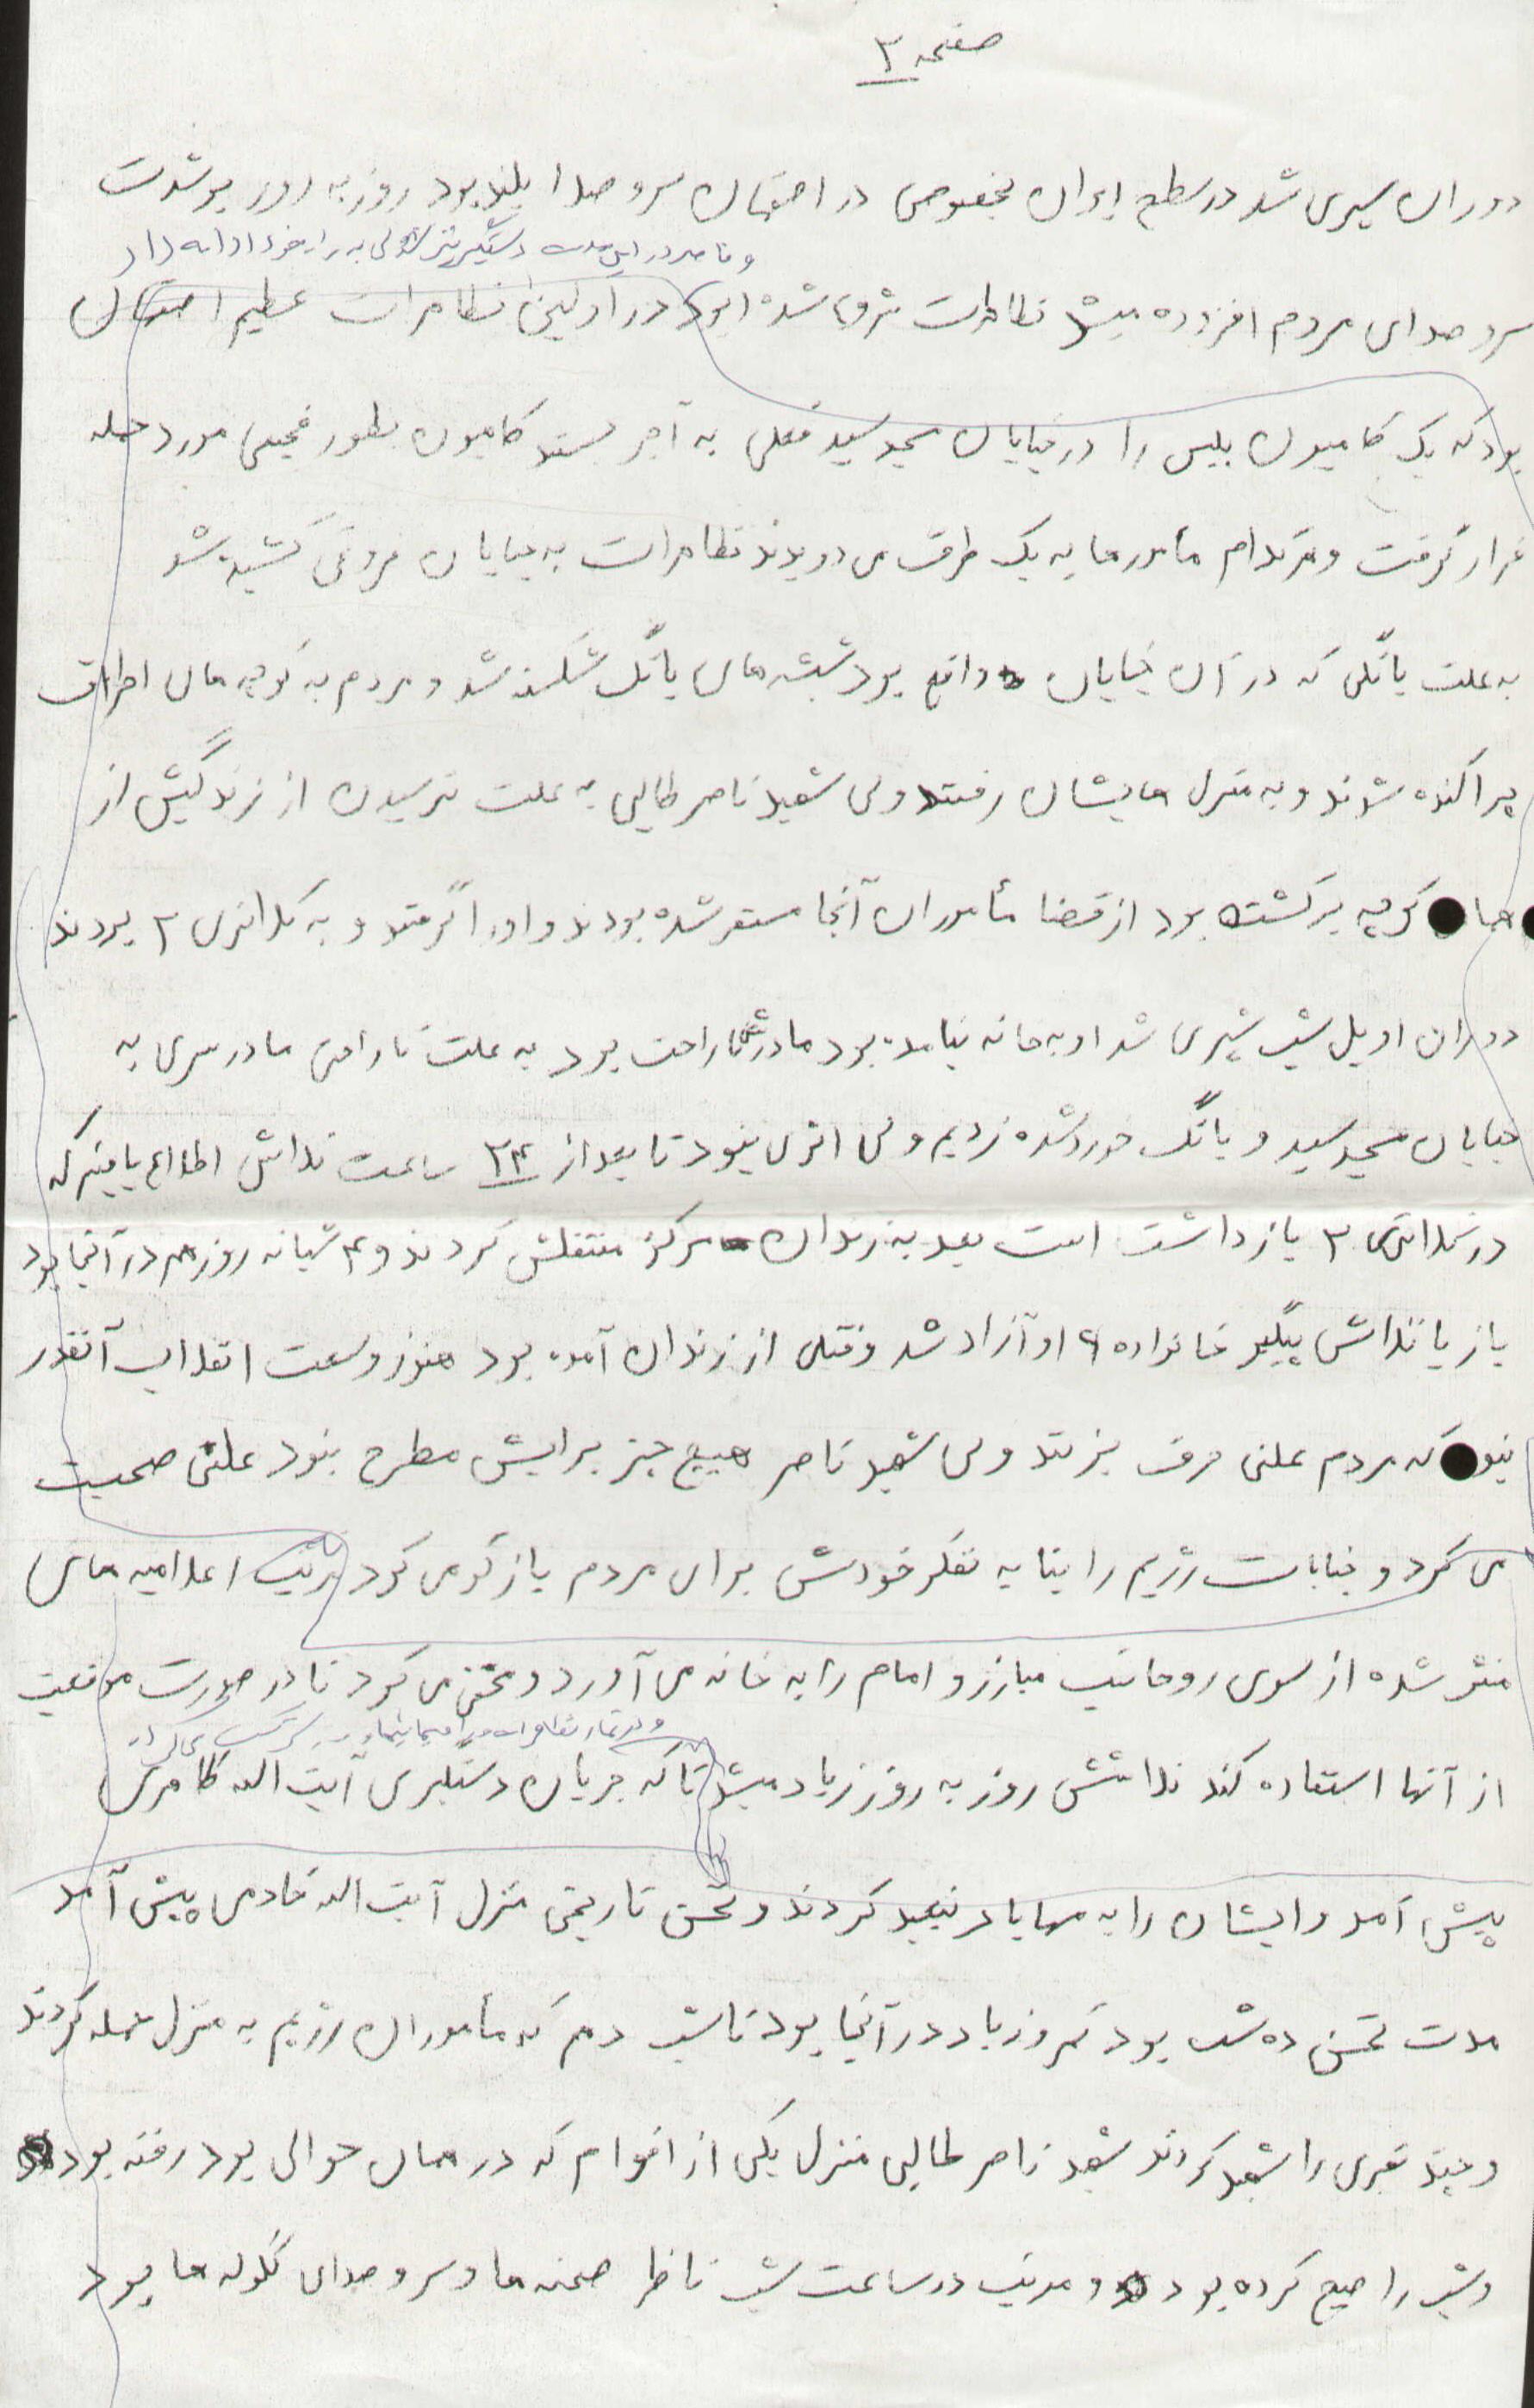 صفحه ۲
دوران سپری شد در سطح ایران بخصوص در اصفهان سر و صدا بلند بود روز به روز بر شدت
و ناصر در این مدت دستگیر نیز شد ولی به راه خود ادامه داد
سر و صدای مردم افزوده میشد تظاهرات شروع شده بود در اولین تظاهرات عظیم اصفهان
بود که یک کامیون پلیس را در خیابان مسجد سید فعلی به آجر بستند کامیون بطور عجیبی مورد حمله
قرار گرفت و هر کدام مأمورها به یک طرف می دویدند تظاهرات به خیابان فروغی کشیده شد
به علت بانکی که در آن خیابان واقع بود شیشه های بانک شکسته شد و مردم به کوچه های اطراف
پراکنده شوند و به منزل هایشان رفتند ولی شهید ناصر طالبی به علت نترسیدن از زندگیش از
همان کوچه برگشته بود از قضا مأموران آنجا مستقر شده بودند و او را گرفتند و به کلانتری ۲ بردند
دوران اویل شب سپری شد او به خانه نیامده بود مادرش ناراحت بود به علت ناراحتی مادر سری به
خیابان مسجد سید و بانک خورد شده زدیم ولی اثری نبود تا بعد از ۲۴ ساعت تلاش اطلاع یافتیم که
در کلانتری ۲ بازداشت است بعد به زندان مرکز منتقلش کردند و ۴ شبانه روز هم در آنجا بود
باز با تلاش پیگیر خانواده او آزاد شد وقتی از زندان آمده بود هنوز وسعت انقلاب آنقدر
نبود که مردم علنی حرف بزنند ولی شهید ناصر هیچ چیز برایش مطرح نبود علنی صحبت
می کرد و جنایات رژیم را بنا به تفکر خودش برای مردم بازگو می کرد مرتب اعلامیه های
منتشر شده از سوی روحانیت مبارز و امام را به خانه می آورد و مخفی می کرد تا در صورت موقعیت
و در تمام تظاهرات و راهپیمائیها
از آنها استفاده کند تلاشش روز به روز زیاد میشد تا که جریان دستگیری آیت اله طاهری
پیش آمد و ایشان را به مهاباد تبعید کردند و تحصن تاریخی منزل آیت اله خادمی پیش آمد
مدت تحصن ده شب بود که روز بعد در آنجا بود تا شب دهم که مأموران رژیم به منزل حمله کردند
و چند نفری را شهید کردند شهید ناصر طالبی منزل یکی از اقوام که در همان حوالی بود رفته بود
و شب را صبح کرده بود و مرتب در ساعت شب ناظر صحنه ها و سر و صدای گلوله ها بود